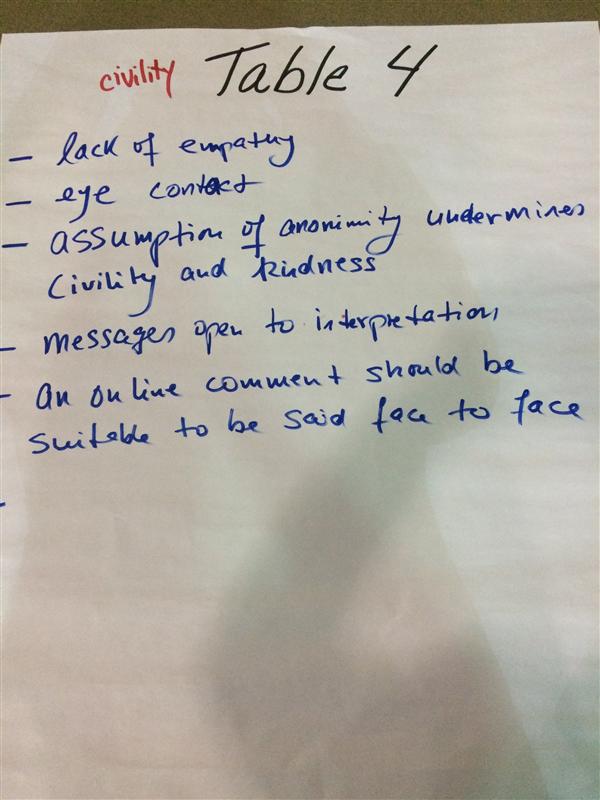 civility Table 4
- lack of empathy
- eye contact
- assumption of anonimity undermines
civility and kindness
- messages open to interpretation,
- an online comment should be
suitable to be said face to face
-